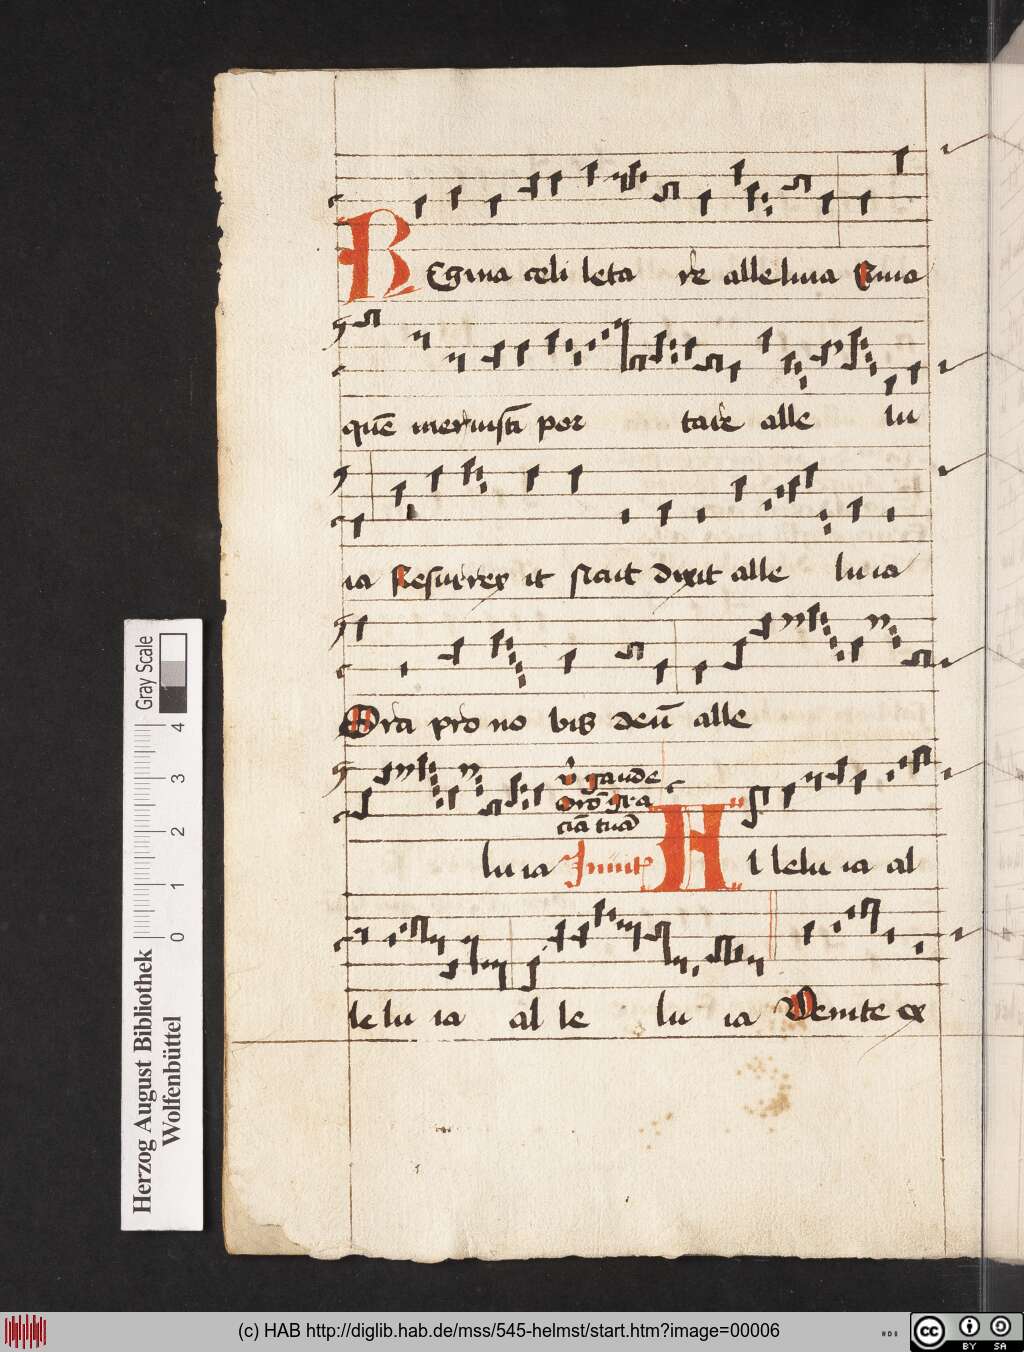 Regina celi leta re alleluia Quia
quē meruisti por tare alle lu
ia Resurrex it sicut dixit alle lu ia
Ora pro no bis deū alle
v̂ gaude
orō gra
ciā tuā
lu ia Inuit Al lelu ia al
le lu ia al le lu ia Venite ex
Gray Scale
0 1 2 3 4
Herzog August Bibliothek
Wolfenbüttel
(c) HAB http://diglib.hab.de/mss/545-helmst/start.htm?image=00006
cc BY SA